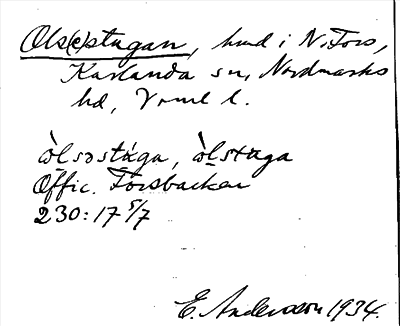 Ols(e)stugan, hmd i N. Fors,
Karlanda sn, Nordmarks
hd, Vrml l.
òlsəstúga, òlstuga
Offic. Forsbacken
230:17 5/7
E. Andersson 1934.